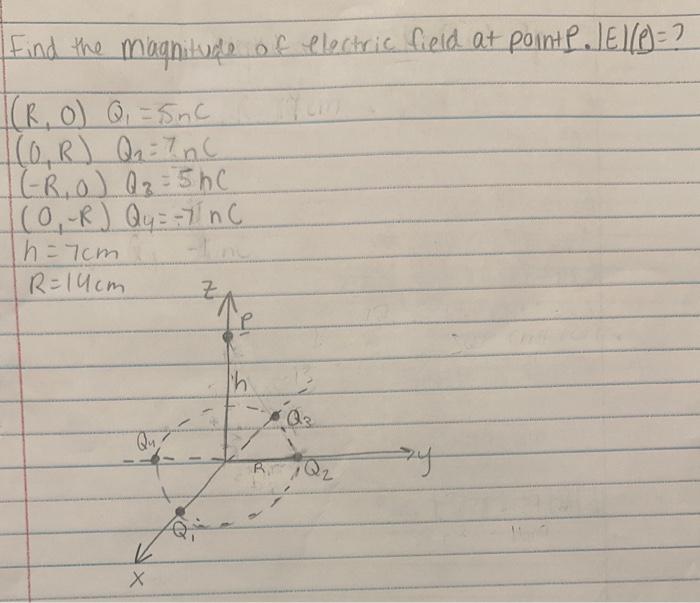 Find the magnitude of electric field at point P. |E|(P)=?
(R, 0) Q₁ = 5nC
(0, R) Q₂ = 7nC
(-R, 0) Q₃ = 5nC
(0, -R) Q₄ = -7nC
h = 7cm
R = 14cm
z
P
h
Q₃
Q₄
R
Q₂
y
Q₁
x